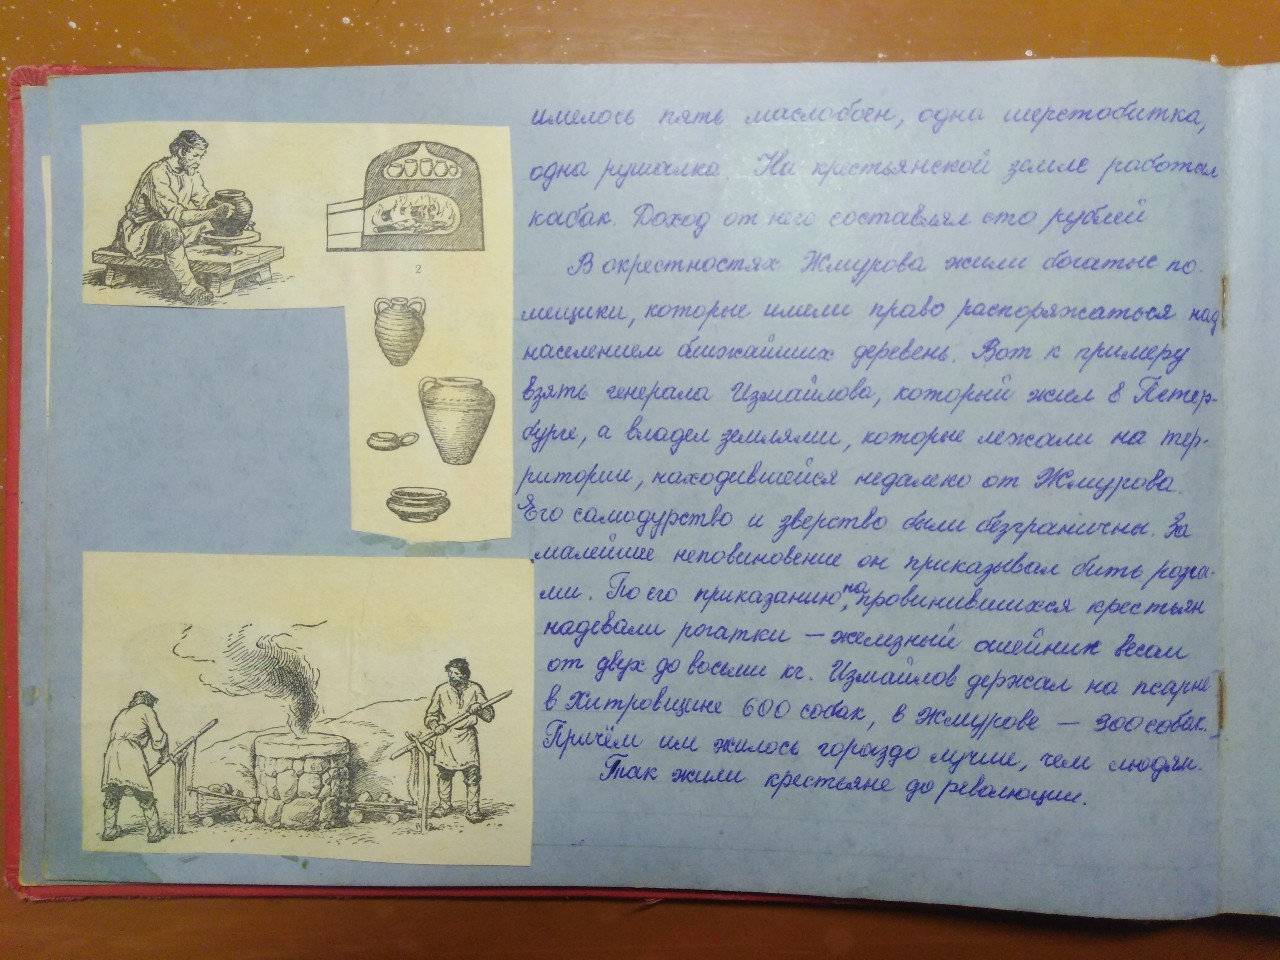 имелось пять маслобоен, одна шерстобитка,
одна рушалка. На крестьянской земле работал
кабак. Доход от него составлял сто рублей
В окрестностях Жмурова жили богатые по-
мещики, которые имели право распоряжаться над
населением ближайших деревень. Вот к примеру
взять генерала Измайлова, который жил в Петер-
бурге, а владел землями, которые лежали на тер-
ритории, находившейся недалеко от Жмурова.
Его самодурство и зверство были безграничны. За
малейшее неповиновение он приказывал бить розга-
ми. По его приказанию, на провинившихся крестьян
надевали рогатки – железный ошейник весом
от двух до восьми кг. Измайлов держал на псарне
в Хитровщине 600 собак, в Жмурове – 300 собак.
Причём им жилось гораздо лучше, чем людям.
Так жили крестьяне до революции.
2